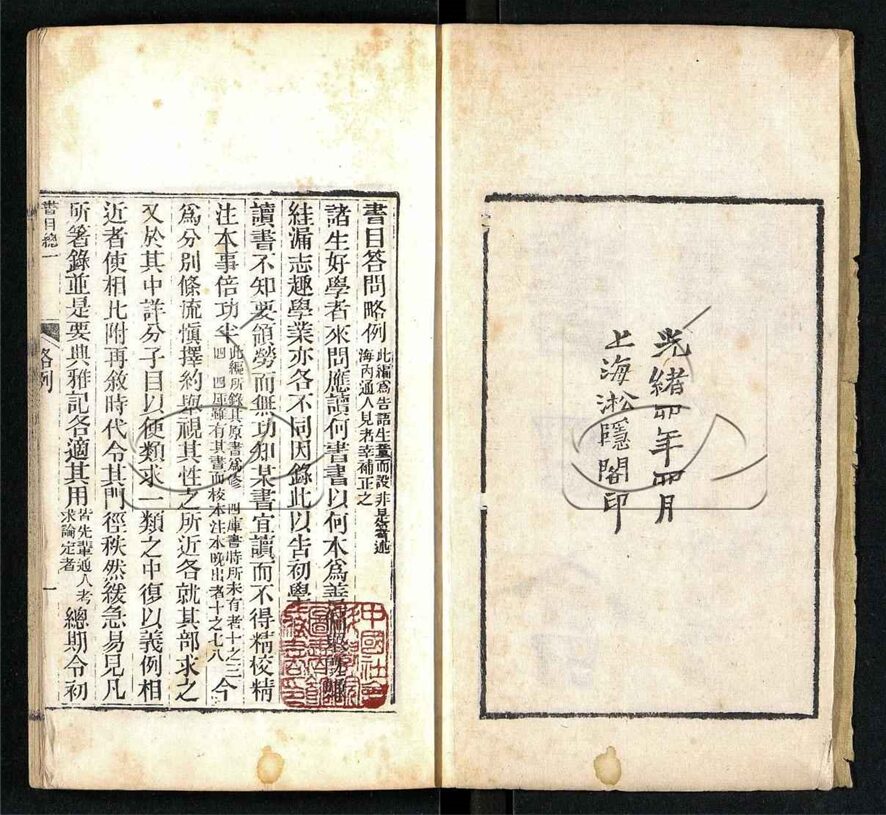 光緒四年四月
上海淞隱閣印
書目答問略例此編爲告語生童而設非是著述
海內通人見者幸補正之
諸生好學者來問應讀何書書以何本爲善偏舉既嫌
絓漏志趣學業亦各不同因錄此以告初學
讀書不知要領勞而無功知某書宜讀而不得精校精
注本事倍功半此編所錄其原書爲修四庫書時所未有者十之三
四四庫雖有其書而校本注本晚出者十之七八今
爲分別條流愼擇約舉視其性之所近各就其部求之
又於其中詳分子目以便類求一類之中復以義例相
近者使相比附再敘時代令其門徑秩然緩急易見凡
所箸錄並是要典雅記各適其用皆先輩通人考
求論定者總期令初
書目總一
略例
一
中國社會